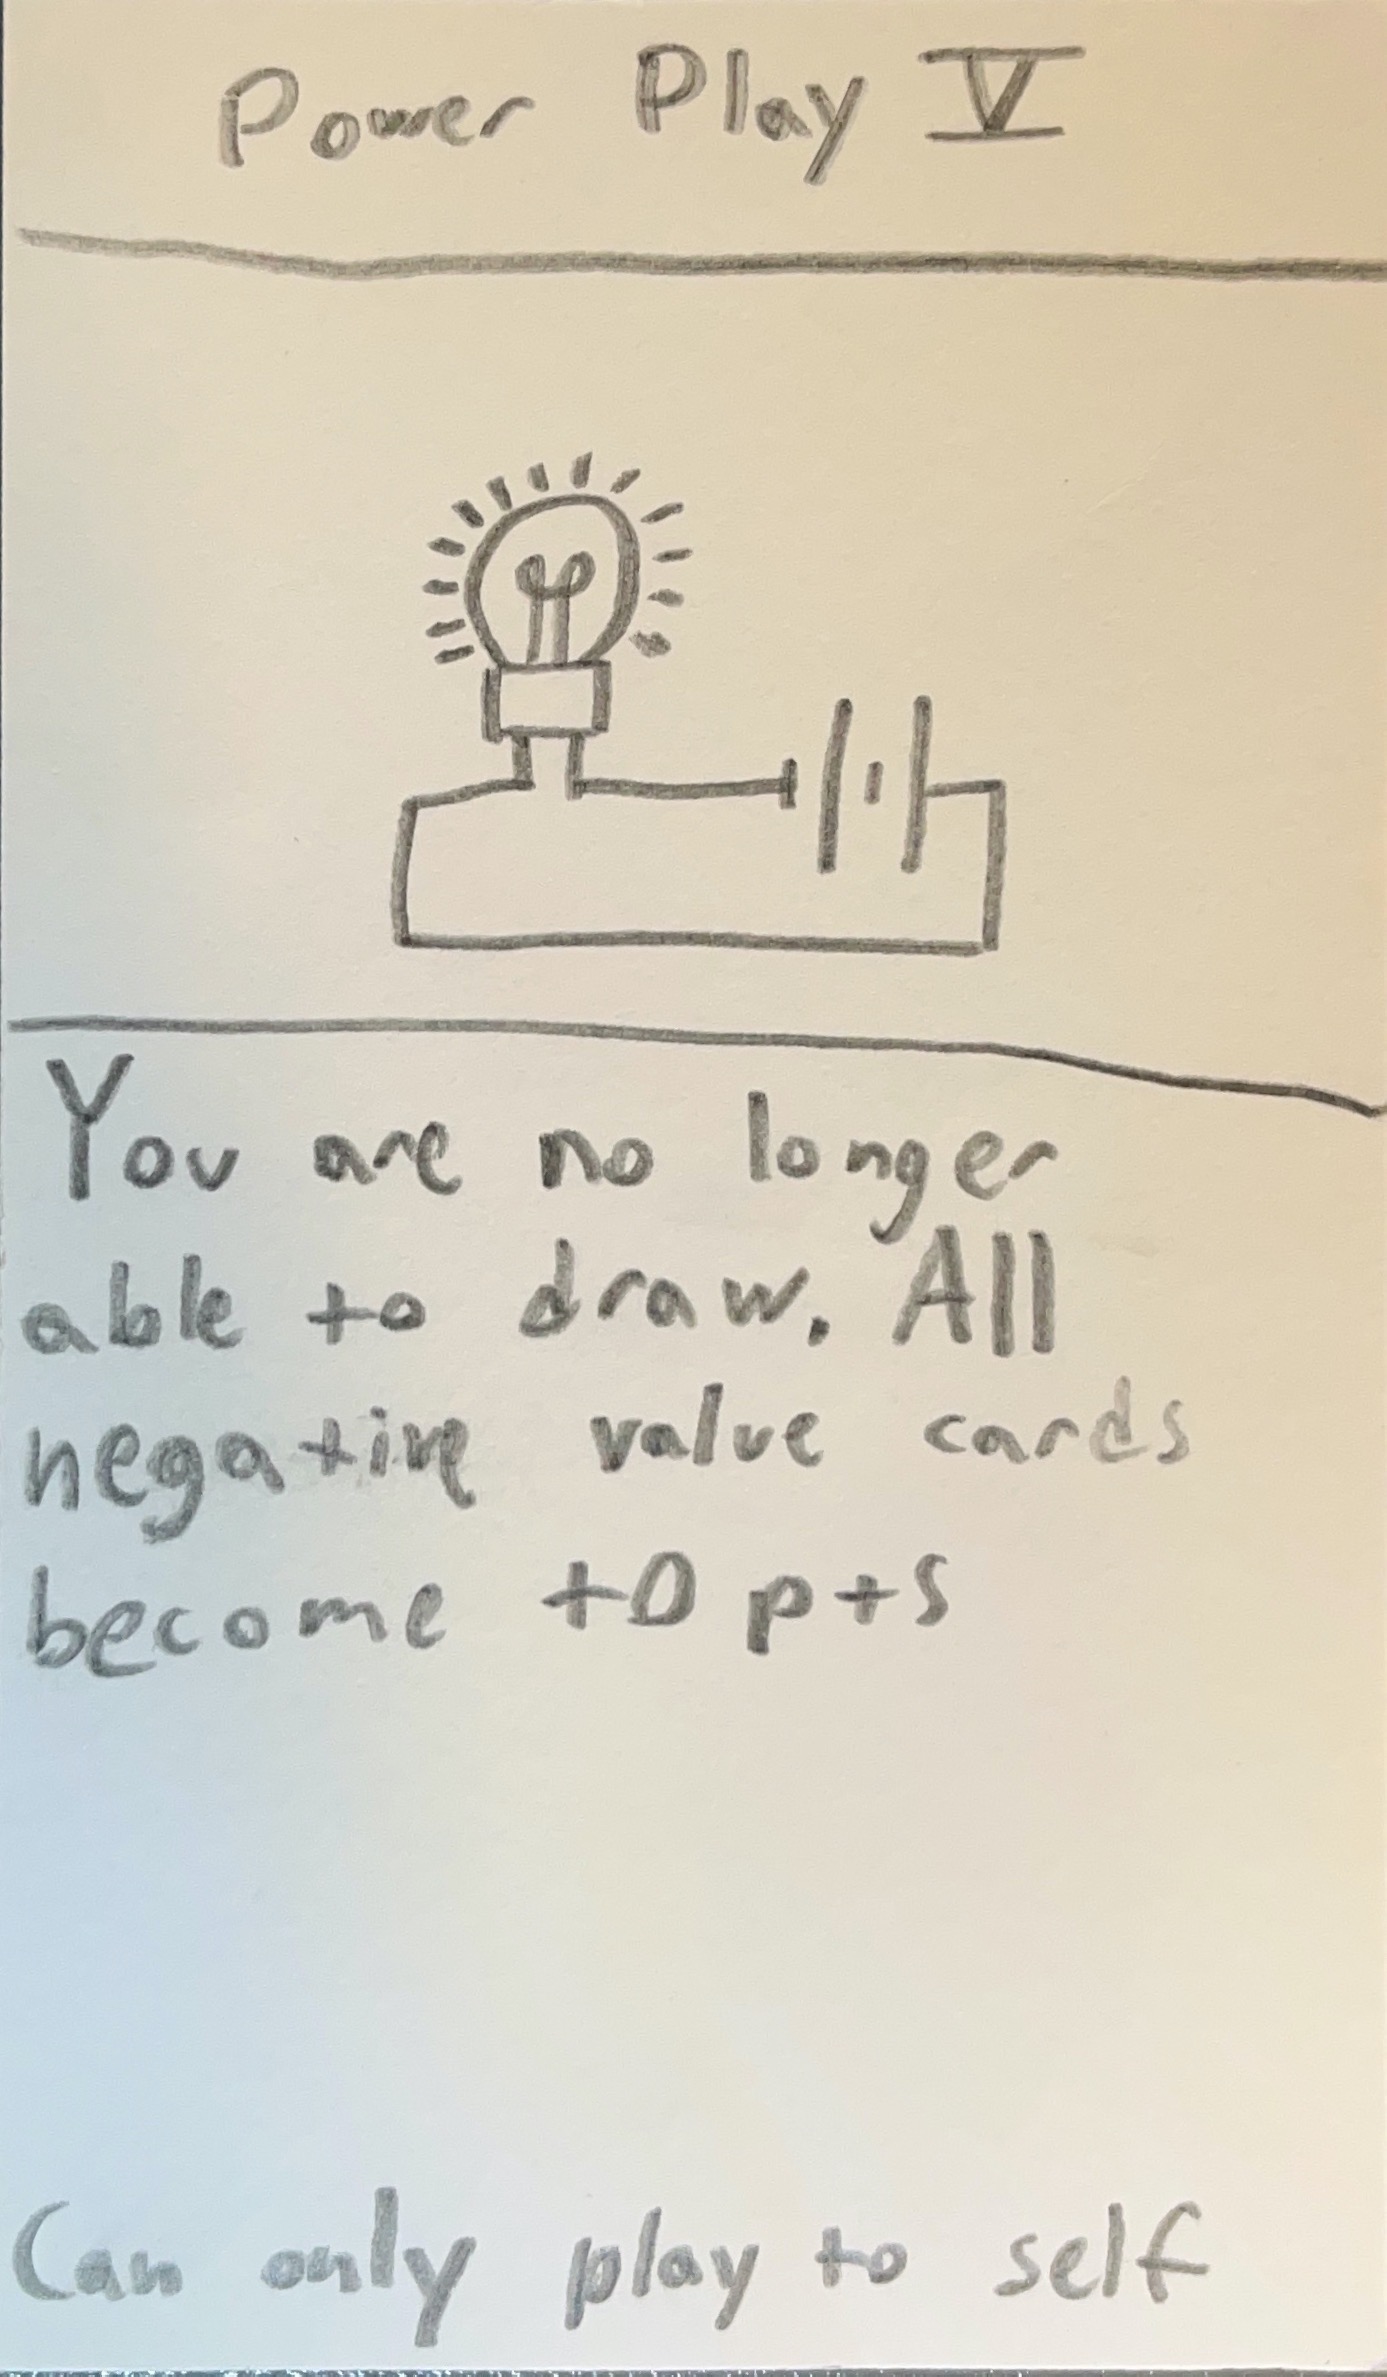 Power Play V
You are no longer
able to draw. All
negative value cards
become +0 pts
Can only play to self